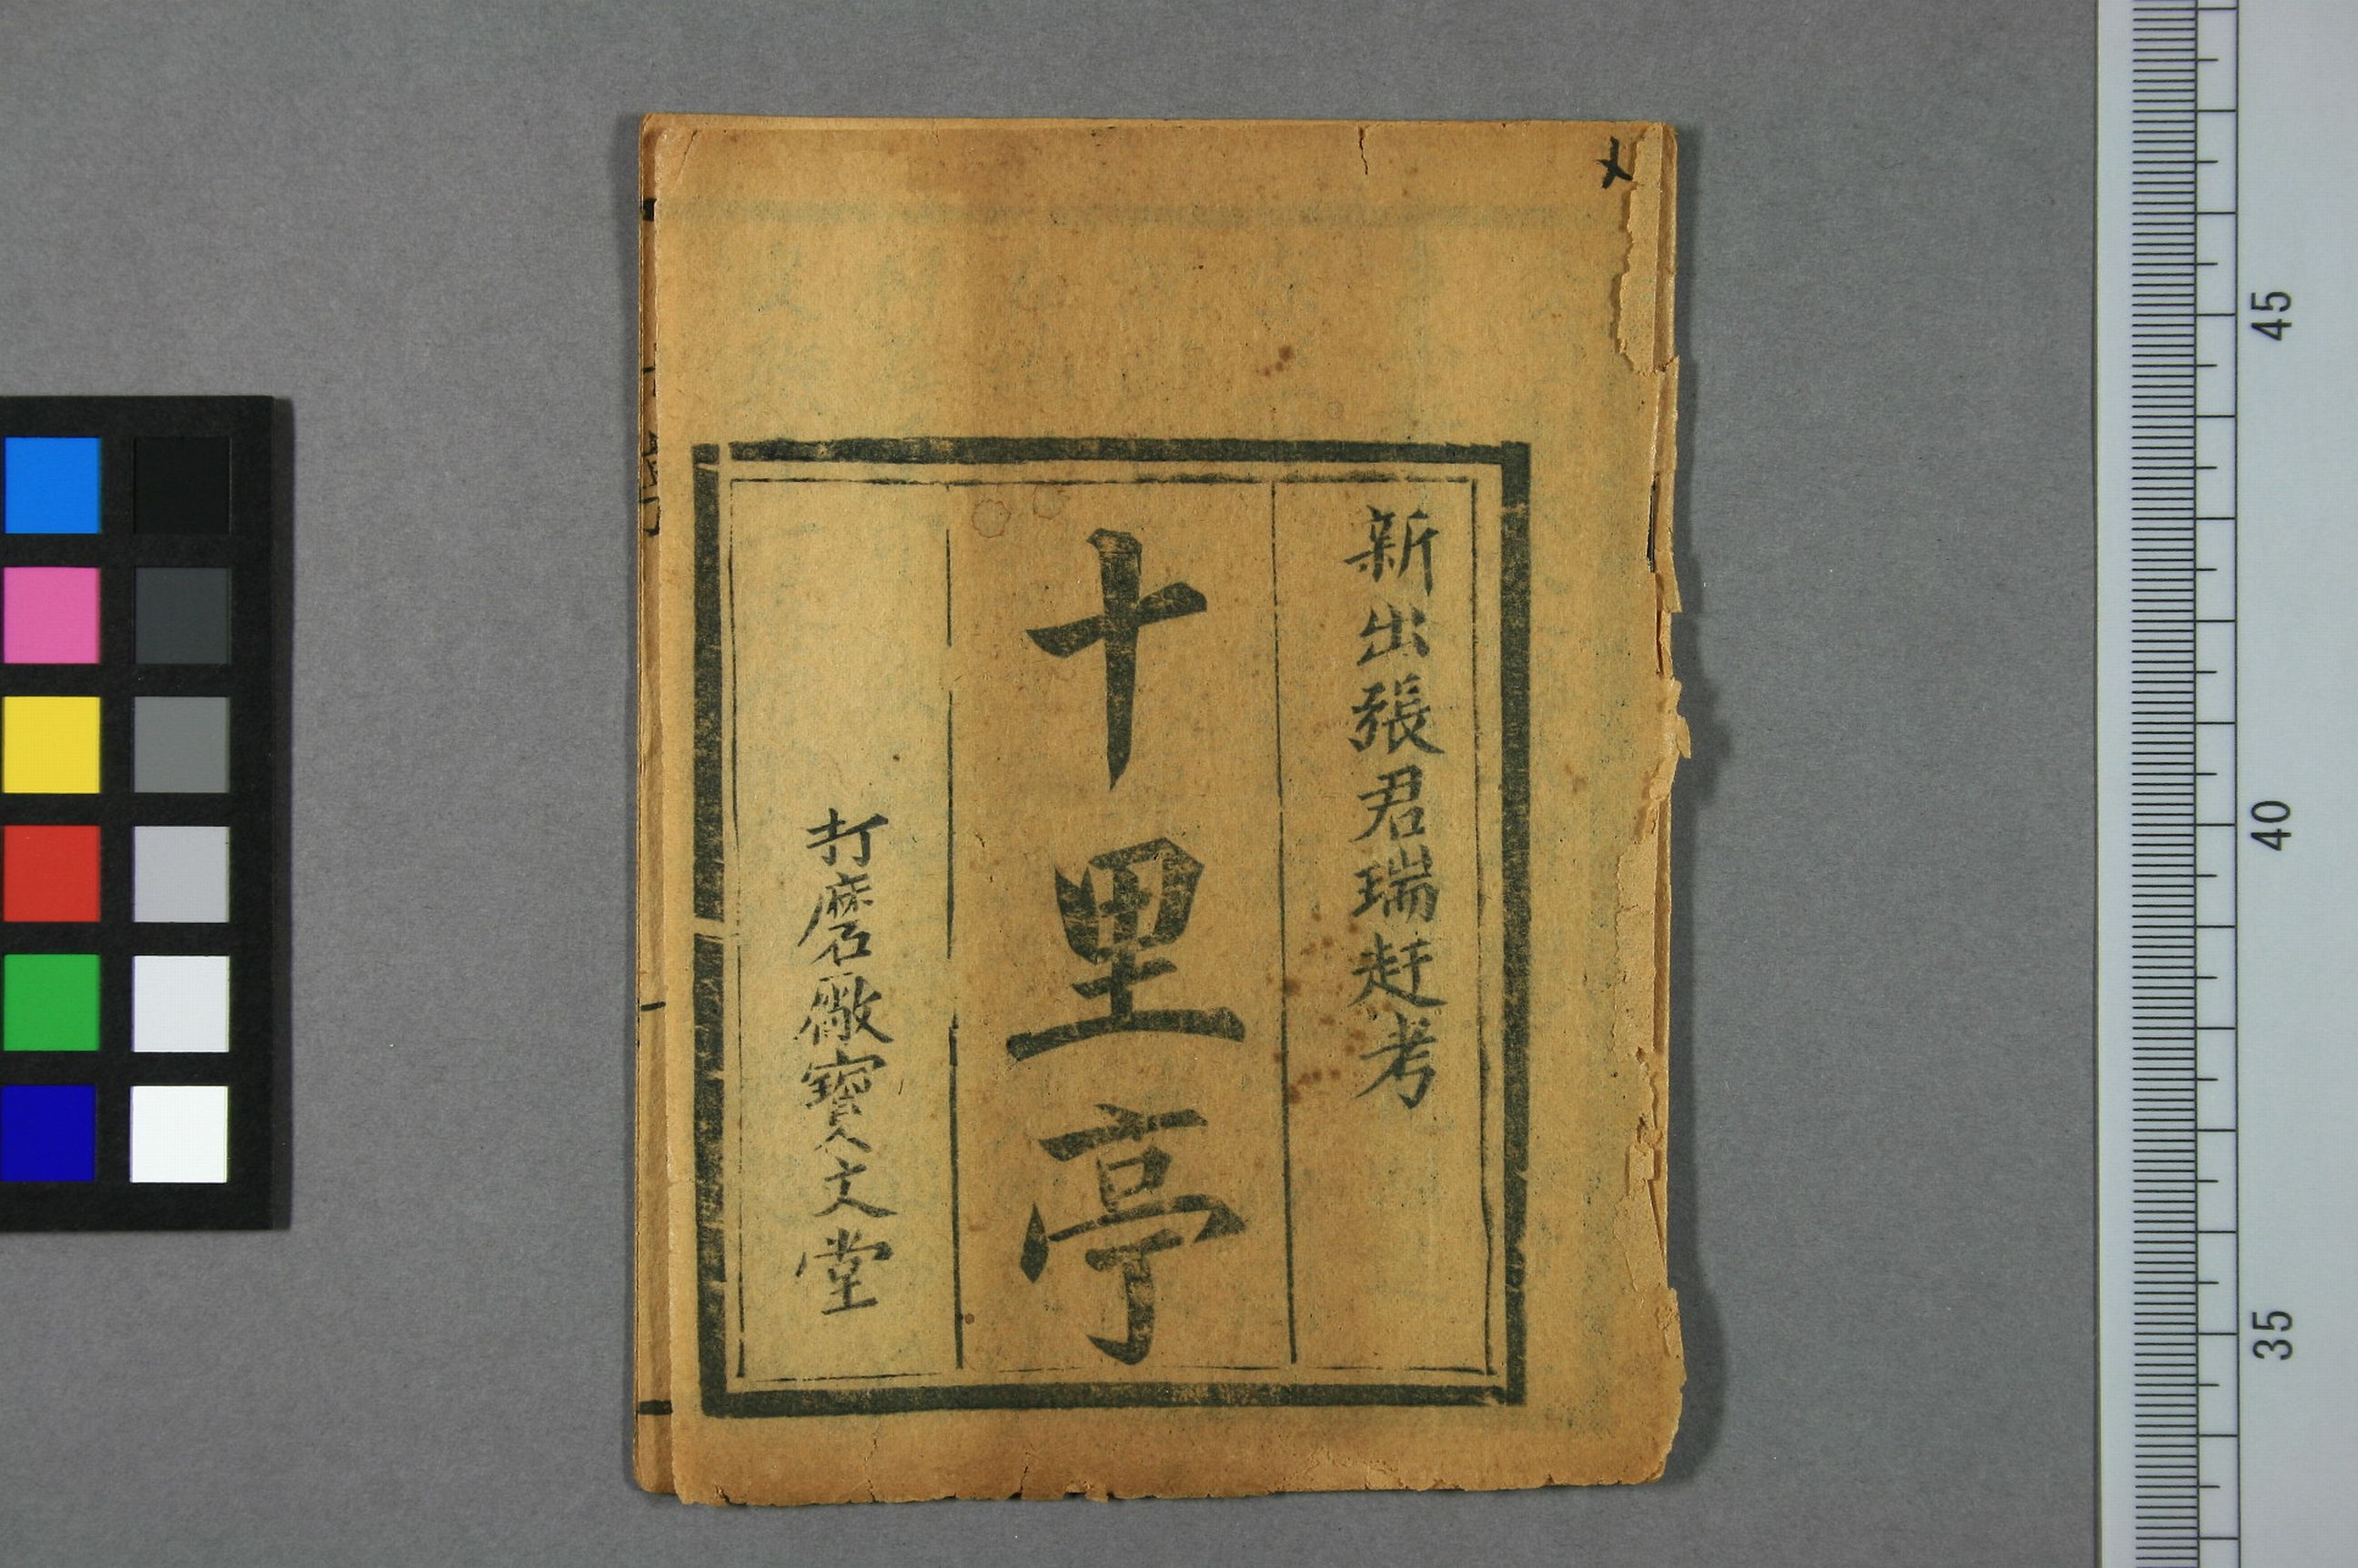 新出張君瑞赶考
十里亭
打磨廠寶文堂
45
40
35